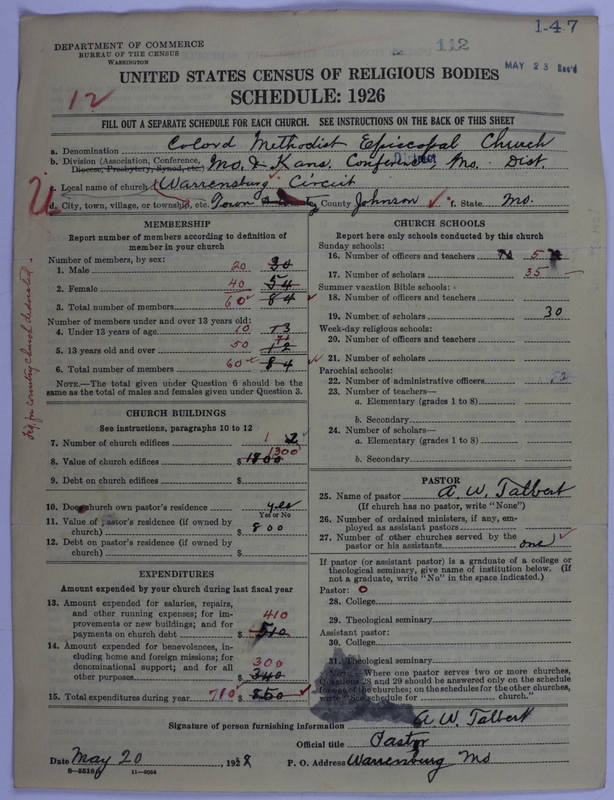 147
112
MAY 23 Rec'd
DEPARTMENT OF COMMERCE
BUREAU OF THE CENSUS
WASHINGTON
UNITED STATES CENSUS OF RELIGIOUS BODIES
SCHEDULE: 1926
12
FILL OUT A SEPARATE SCHEDULE FOR EACH CHURCH. SEE INSTRUCTIONS ON THE BACK OF THIS SHEET
a. Denomination Colord Methodist Episcopal Church
b. Division (Association, Conference, Diocese, Presbytery, Synod, etc.) Mo. & Kans. Conference, Mo. Dist.
c. Local name of church Warrensburg Circuit
d. City, town, village, or township, etc. Town County Johnson f. State Mo.
MEMBERSHIP
Report number of members according to definition of
member in your church
Number of members, by sex:
1. Male 20 30
2. Female 40 54
3. Total number of members 60 84
Number of members under and over 13 years old:
4. Under 13 years of age 10 13
5. 13 years old and over 50 71
6. Total number of members 60 84
NOTE.—The total given under Question 6 should be
same as the total of males and females given under Question 3.
CHURCH BUILDINGS
See instructions, paragraphs 10 to 12
7. Number of church edifices 1 2
8. Value of church edifices $ 1300 1800
9. Debt on church edifices $
10. Does church own pastor's residence yes
Yes or No
11. Value of pastor's residence (if owned by
church) $ 800
12. Debt on pastor's residence (if owned by
church) $
EXPENDITURES
Amount expended by your church during last fiscal year
13. Amount expended for salaries, repairs,
and other running expenses; for im-
provements or new buildings; and for
payments on church debt $ 410 510
14. Amount expended for benevolences, in-
cluding home and foreign missions; for
denominational support; and for all
other purposes $ 300 340
15. Total expenditures during year 710 $ 850
CHURCH SCHOOLS
Report here only schools conducted by this church
Sunday schools:
16. Number of officers and teachers 5
17. Number of scholars 35
Summer vacation Bible schools:
18. Number of officers and teachers
19. Number of scholars 30
Week-day religious schools:
20. Number of officers and teachers
21. Number of scholars
Parochial schools:
22. Number of administrative officers
23. Number of teachers—
a. Elementary (grades 1 to 8)
b. Secondary
24. Number of scholars—
a. Elementary (grades 1 to 8)
b. Secondary
PASTOR
25. Name of pastor A. W. Talbert
(If church has no pastor, write "None")
26. Number of ordained ministers, if any, em-
ployed as assistant pastors
27. Number of other churches served by the
pastor or his assistants one
If pastor (or assistant pastor) is a graduate of a college or
theological seminary, give name of institution below. (If
not a graduate, write "No" in the space indicated.)
Pastor: o
28. College
29. Theological seminary
Assistant pastor:
30. College
31. Theological seminary
Where one pastor serves two or more churches,
Questions 28 and 29 should be answered only on the schedule
for one of the churches; on the schedules for the other churches,
write "See schedule for church."
Signature of person furnishing information A W. Talbert
Official title Pastor
Date May 20, 1928 P. O. Address Warrensburg Mo
11—9064